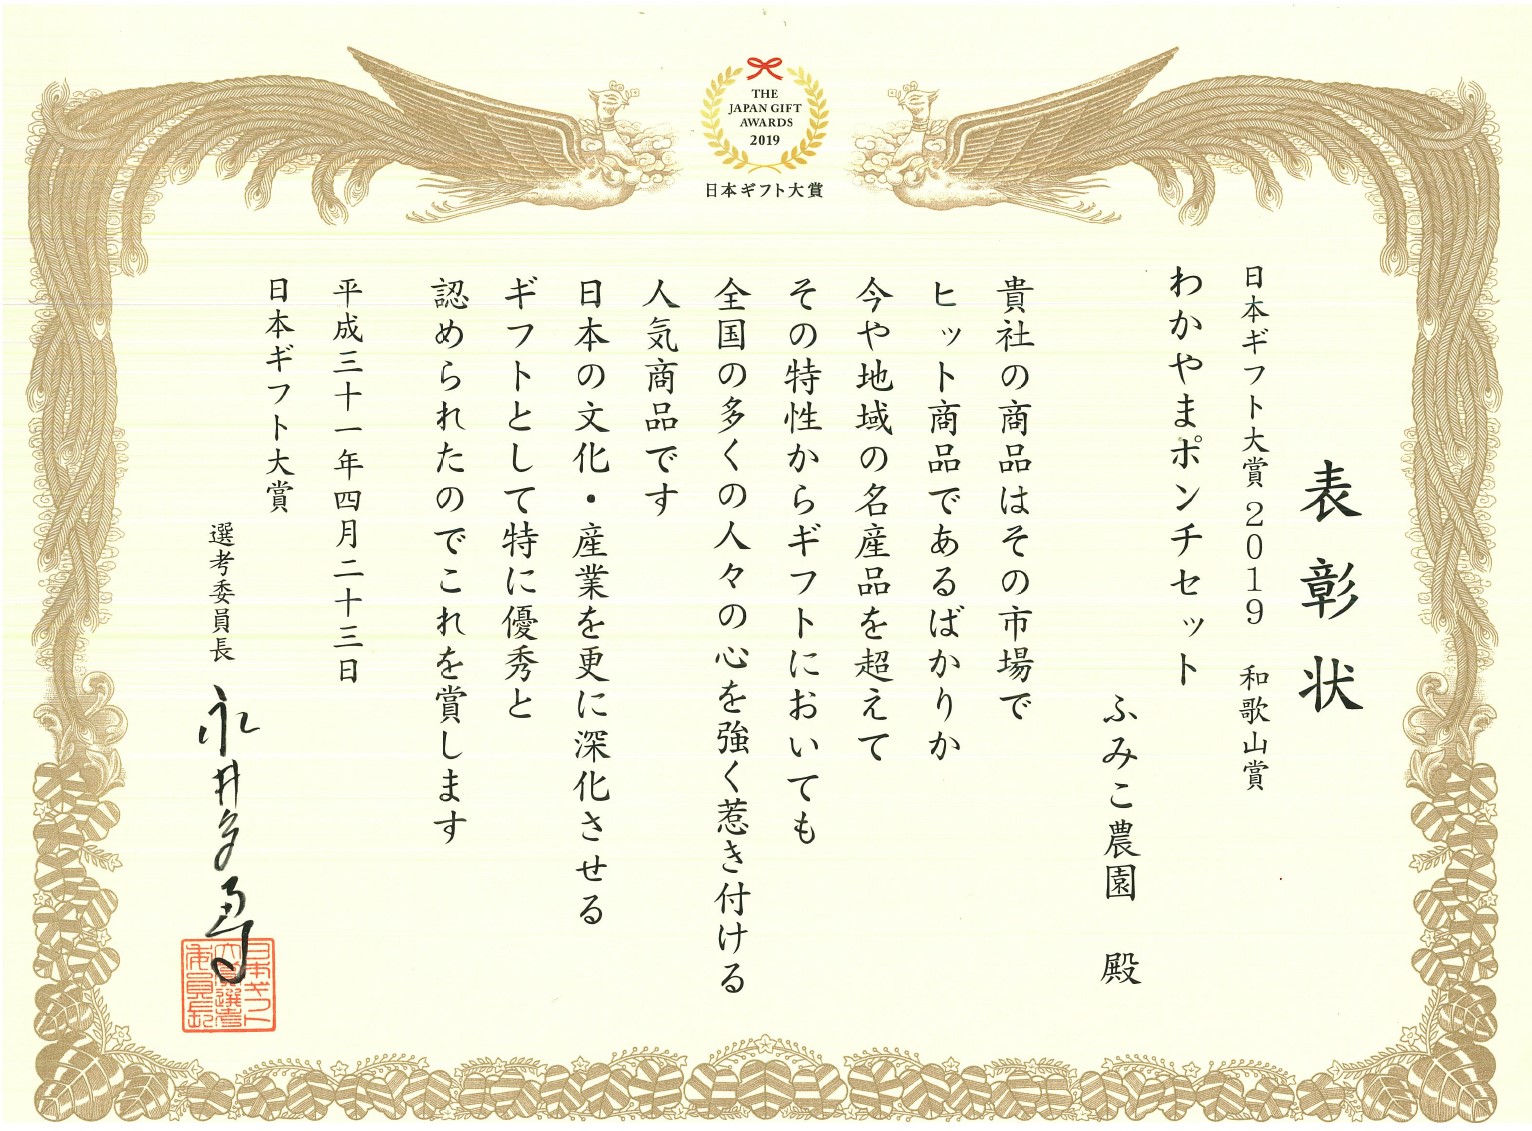 THE
JAPAN GIFT
AWARDS
2019
日本ギフト大賞
表彰状
日本ギフト大賞2019 和歌山賞
わかやまポンチセット
ふみこ農園 殿
貴社の商品はその市場で
ヒット商品であるばかりか
今や地域の名産品を超えて
その特性からギフトにおいても
全国の多くの人々の心を強く惹き付ける
人気商品です
日本の文化・産業を更に深化させる
ギフトとして特に優秀と
認められたのでこれを賞します
平成三十一年四月二十三日
日本ギフト大賞
選考委員長
日本ギフト
大賞選考
委員長